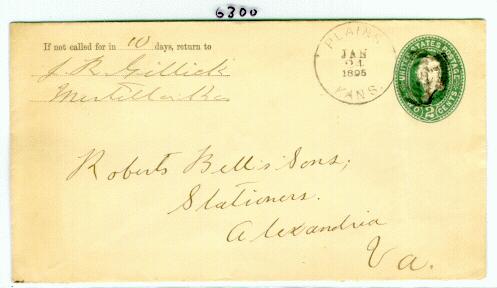 6300
If not called for in 10 days, return to
J. R. Gillick
Kas
PLAINS
JAN
21
1895
KANS.
UNITED STATES POSTAGE
TWO 2 CENTS
Roberts Bell's Sons;
Stationers.
Alexandria
Va.